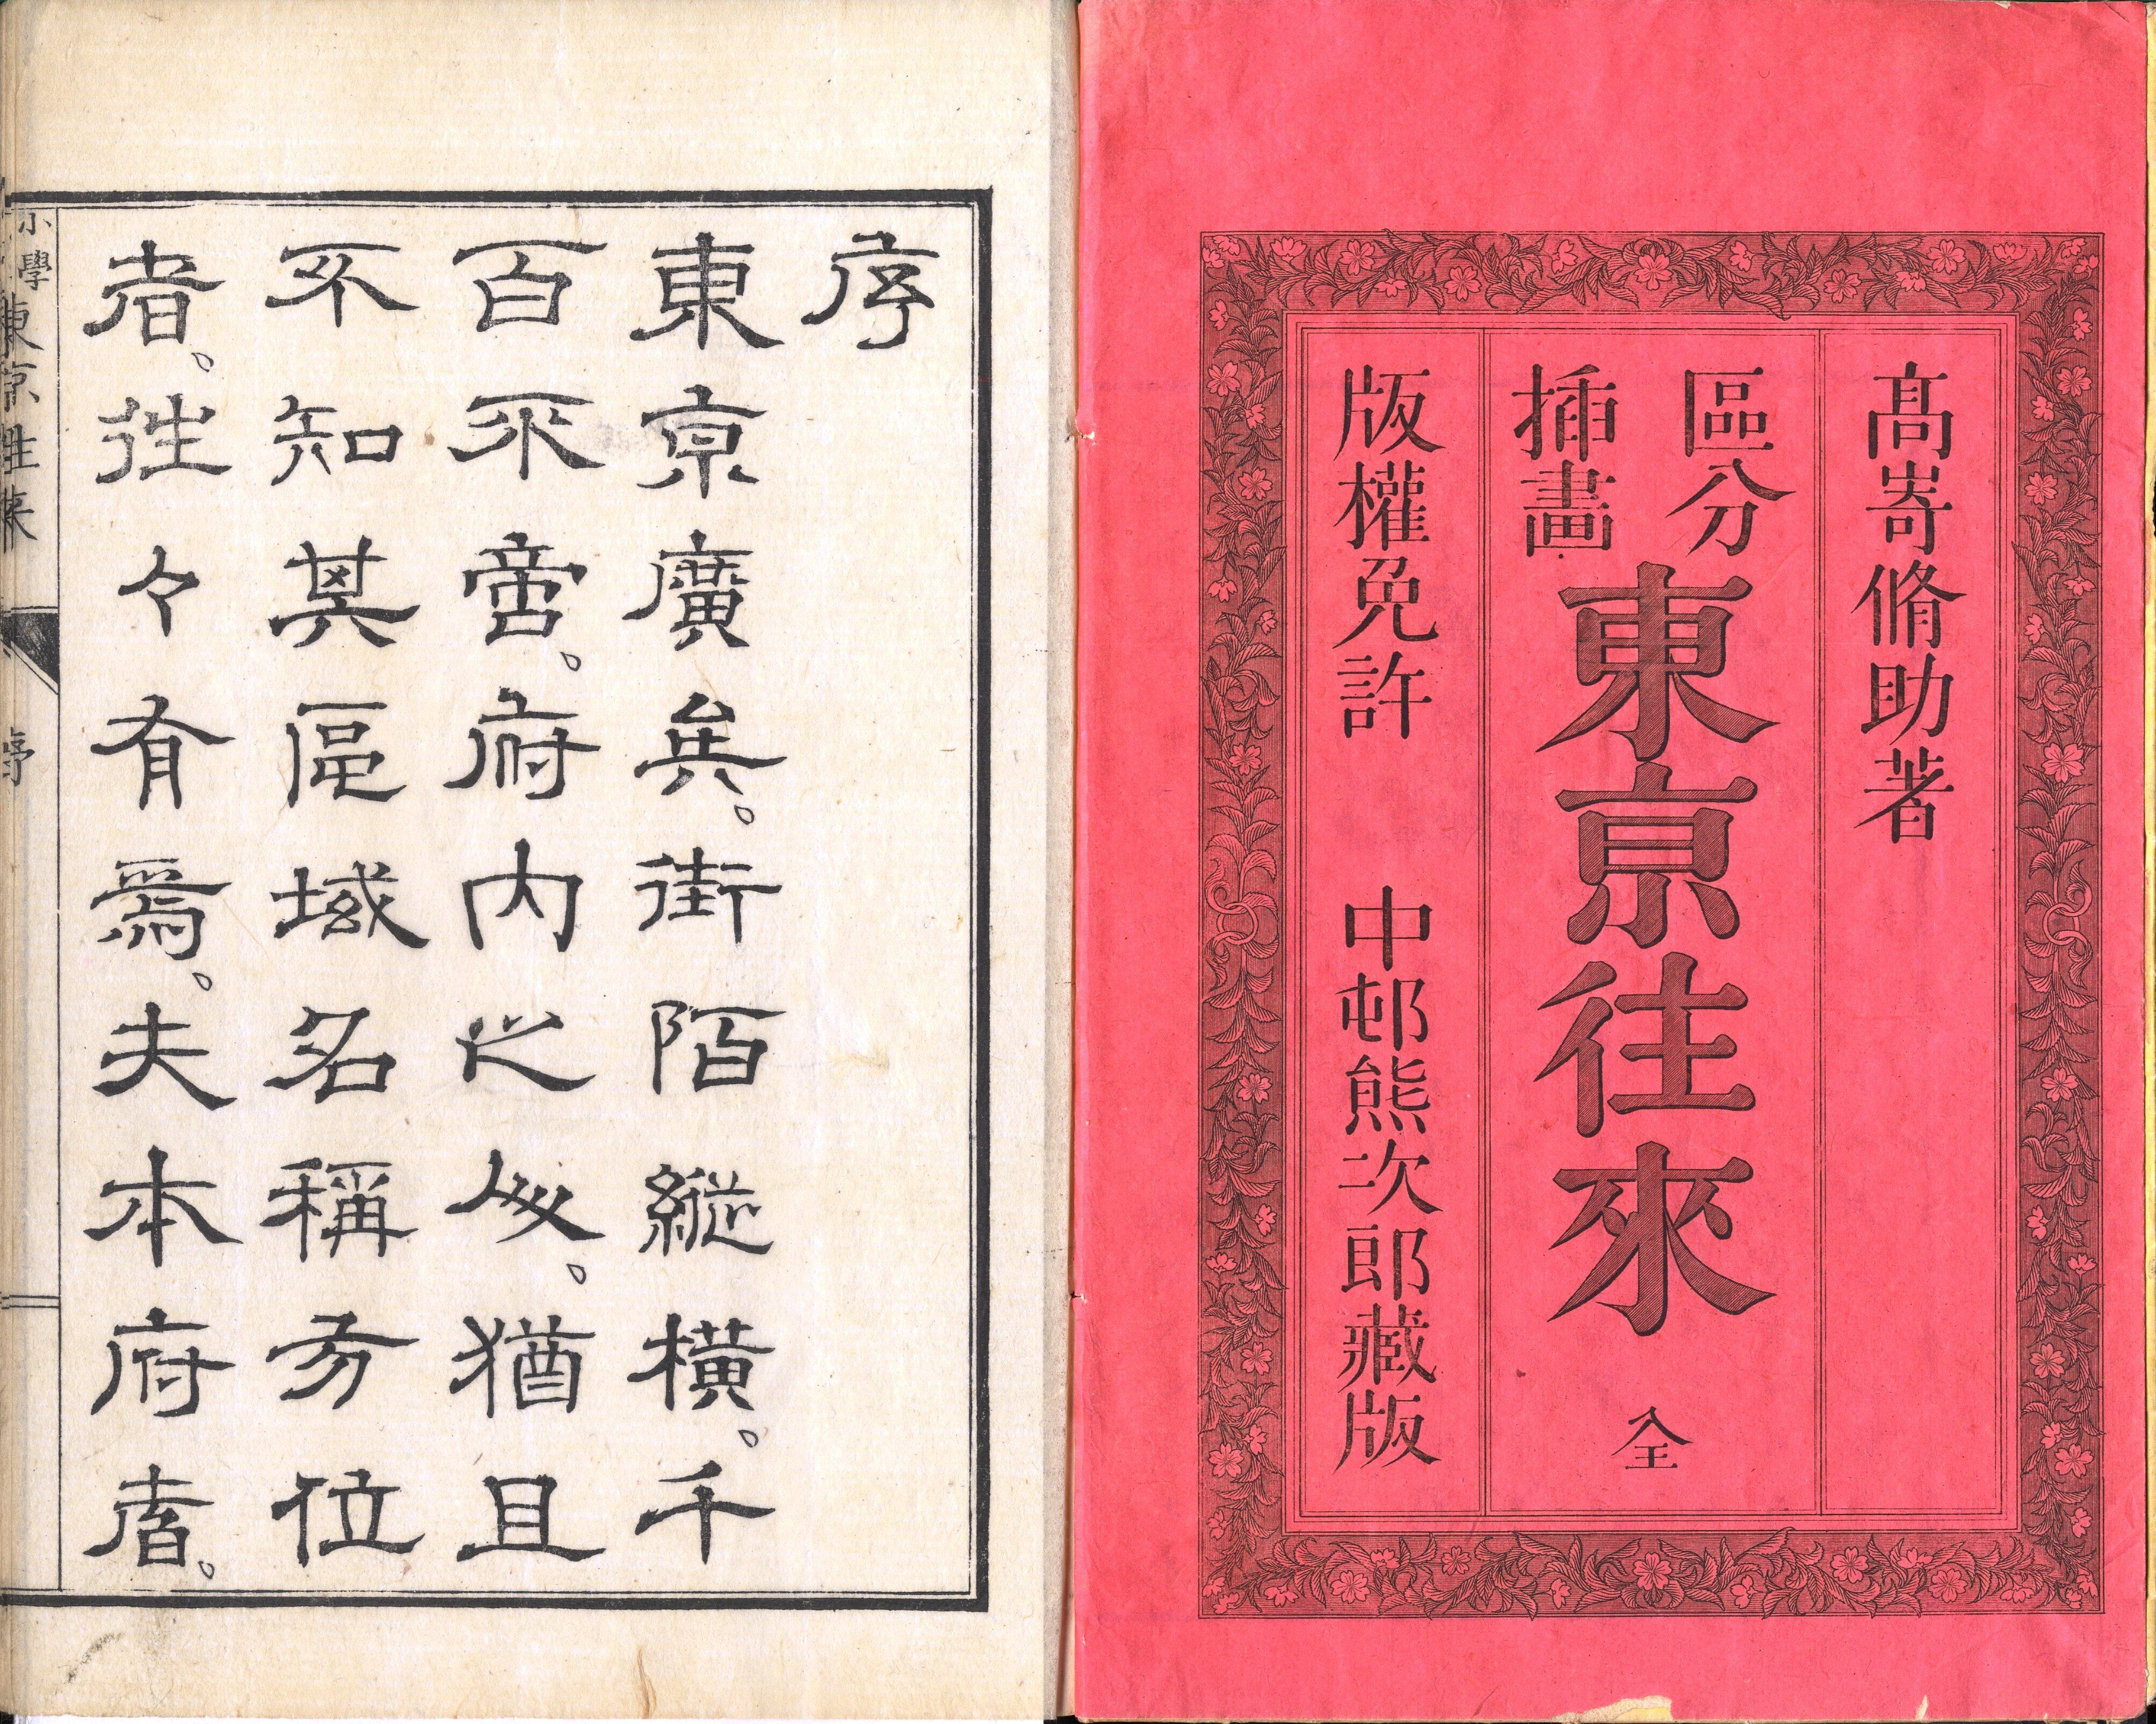 髙嵜脩助著
區分
挿畫
東京往來 全
版權免許 中邨熊次郎藏版
序
東京廣矣。街陌縱橫。千
百不啻。府内之人。猶且
不知其區域名稱方位
者。往々有焉。夫本府者。
小學東京往来 序